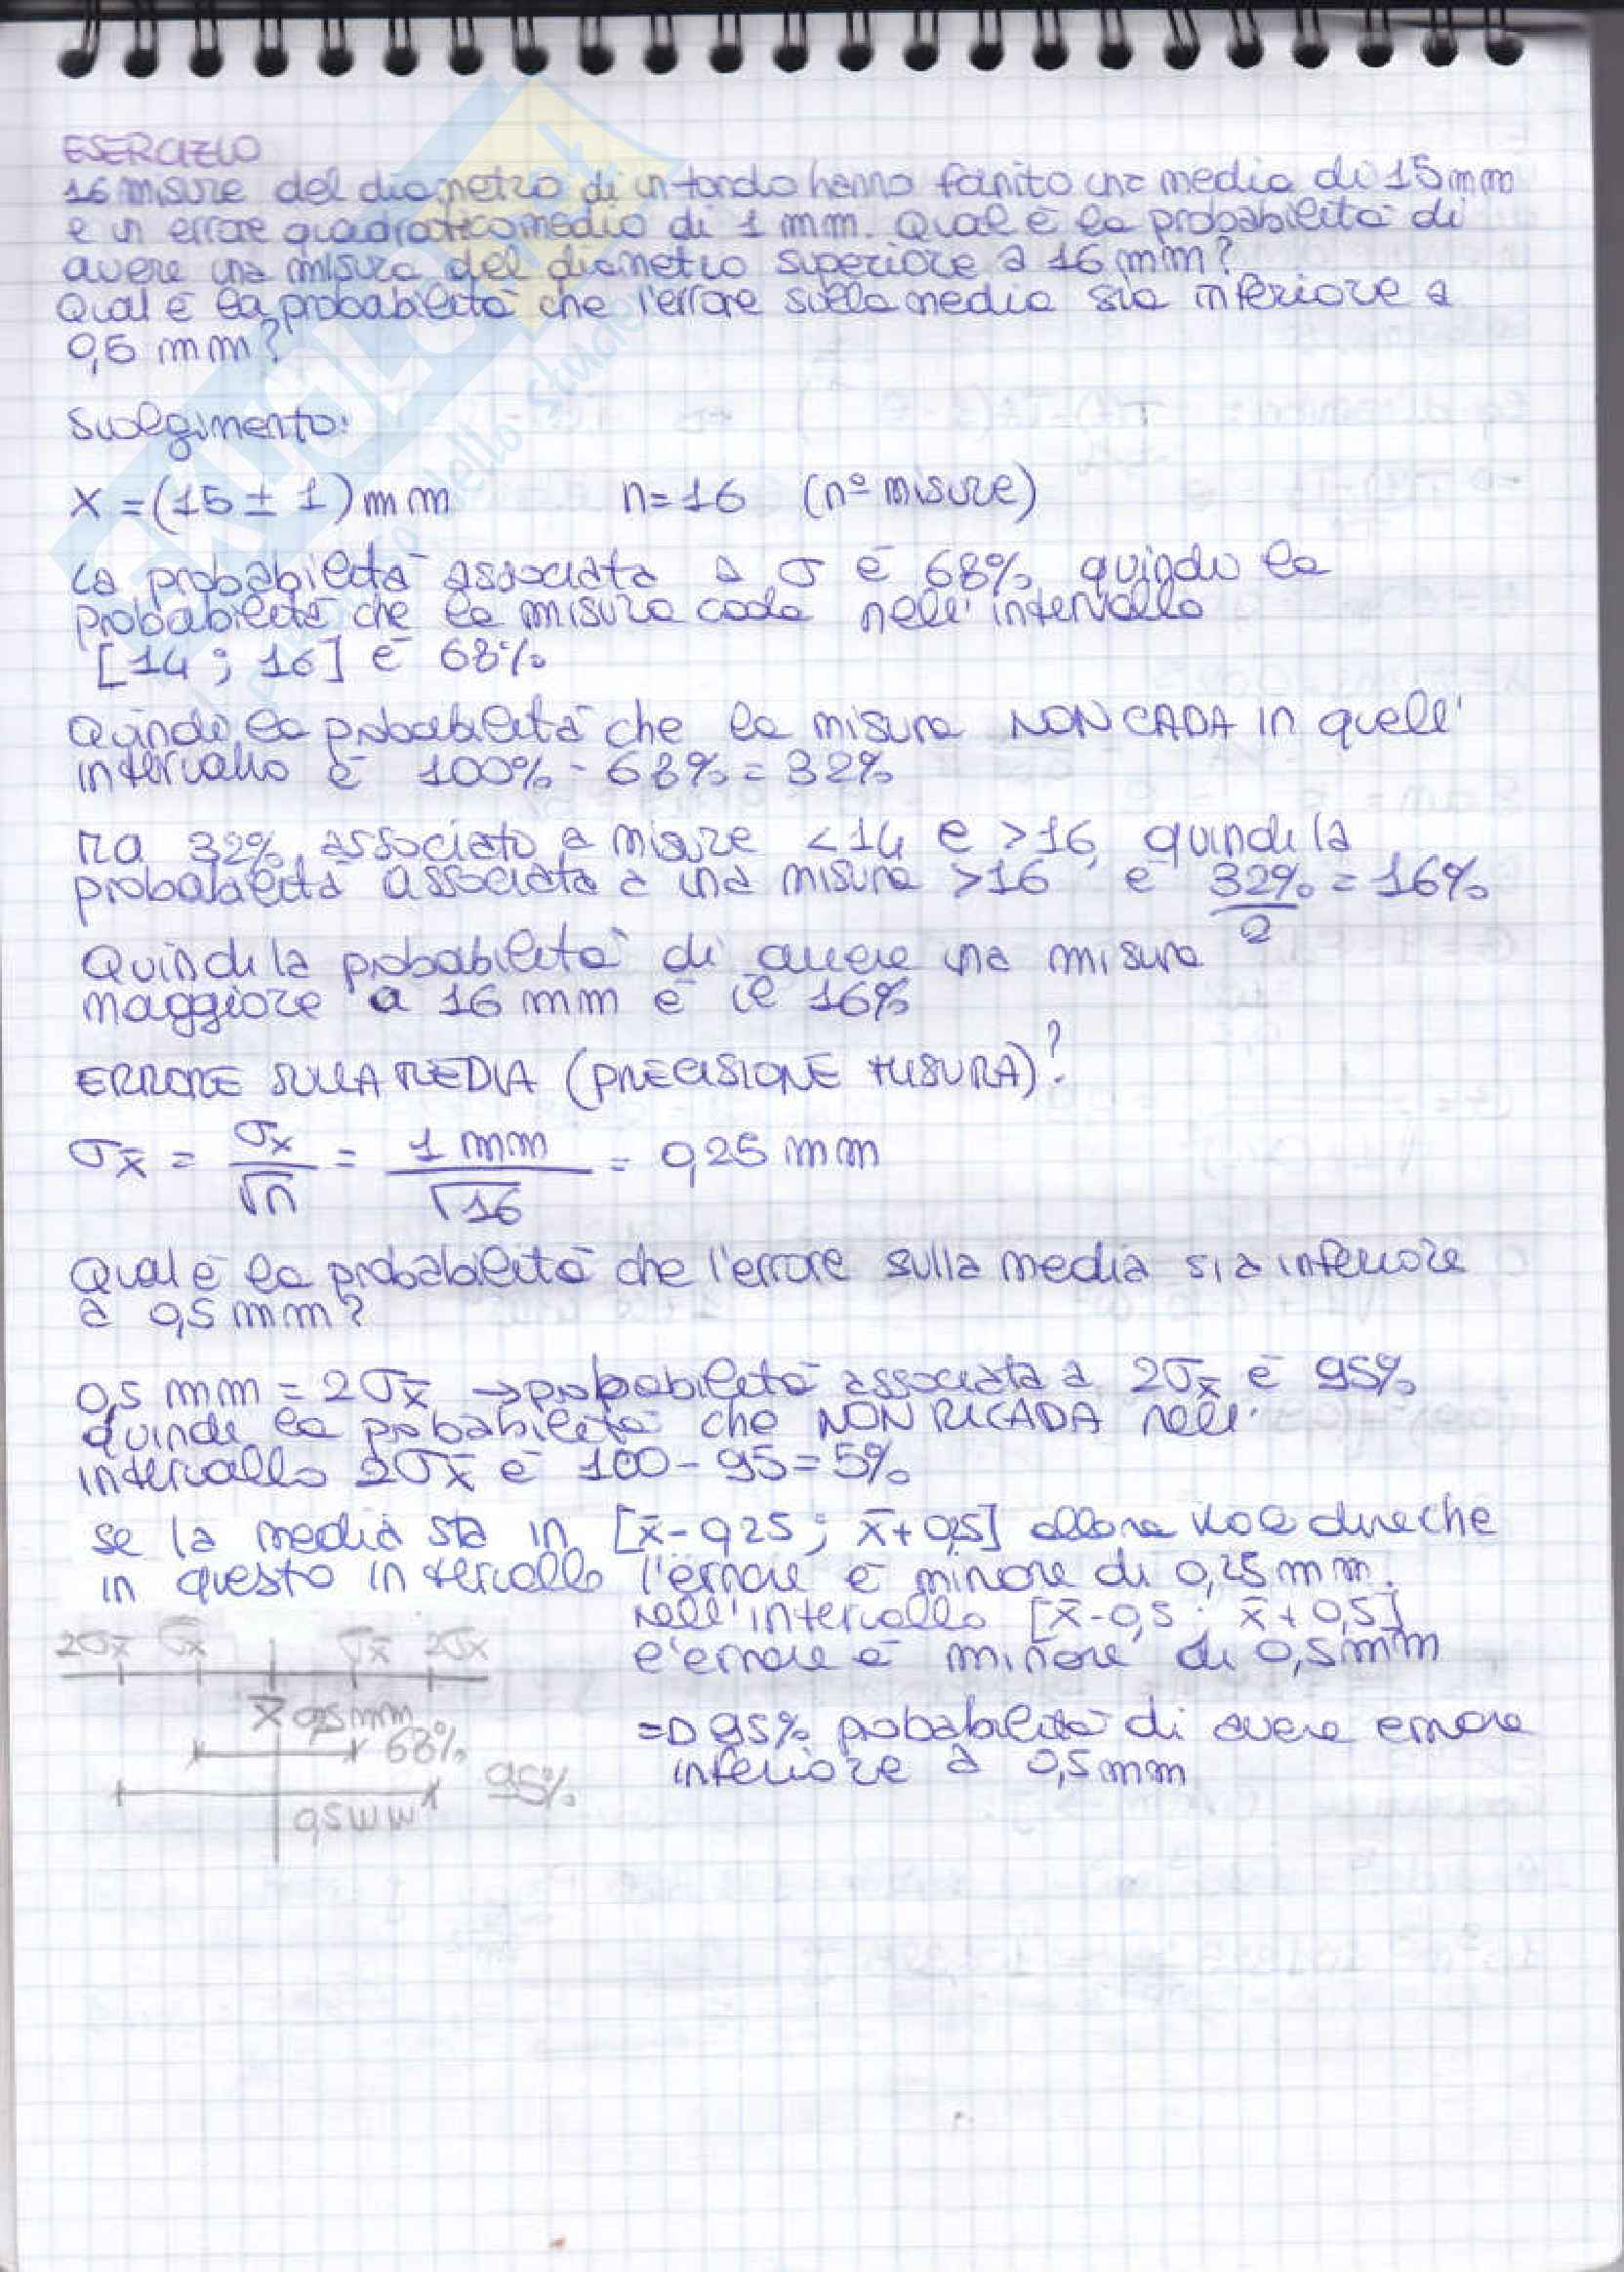 ESERCIZIO
16 misure del diametro di un tondo hanno fornito una media di 15 mm
e un errore quadratico medio di 1 mm. Qual è la probabilità di
avere una misura del diametro superiore a 16 mm?
Qual è la probabilità che l'errore sulla media sia inferiore a
0,5 mm?
Svolgimento:
X = (15 ± 1) mm n = 16 (n° misure)
La probabilità associata a σ è 68% quindi la
probabilità che la misura cada nell'intervallo
[14 ; 16] è 68%
Quindi la probabilità che la misura NON CADA in quell'
intervallo è 100% - 68% = 32%
Ma 32% associato a misure <14 e >16, quindi la
probabilità associata a una misura >16 è 32%/2 = 16%
Quindi la probabilità di avere una misura
maggiore a 16 mm è il 16%
ERRORE SULLA MEDIA (PRECISIONE MISURA)?
σx̄ = σx/√n = 1 mm/√16 = 0,25 mm
Qual è la probabilità che l'errore sulla media sia inferiore
a 0,5 mm?
0,5 mm = 2σx̄ → probabilità associata a 2σx̄ è 95%
quindi la probabilità che NON RICADA nell'
intervallo 2σx̄ è 100 - 95 = 5%
se la media sta in [x̄ - 0,25 ; x̄ + 0,5] allora vuol dire che
in questo intervallo l'errore è minore di 0,25 mm.
nell'intervallo [x̄ - 0,5 ; x̄ + 0,5]
l'errore è minore di 0,5 mm
2σx̄ σx̄ σx̄ 2σx̄
x̄ 0,5 mm
68%
=> 95% probabilità di avere errore
inferiore a 0,5 mm
95%
0,5 mm